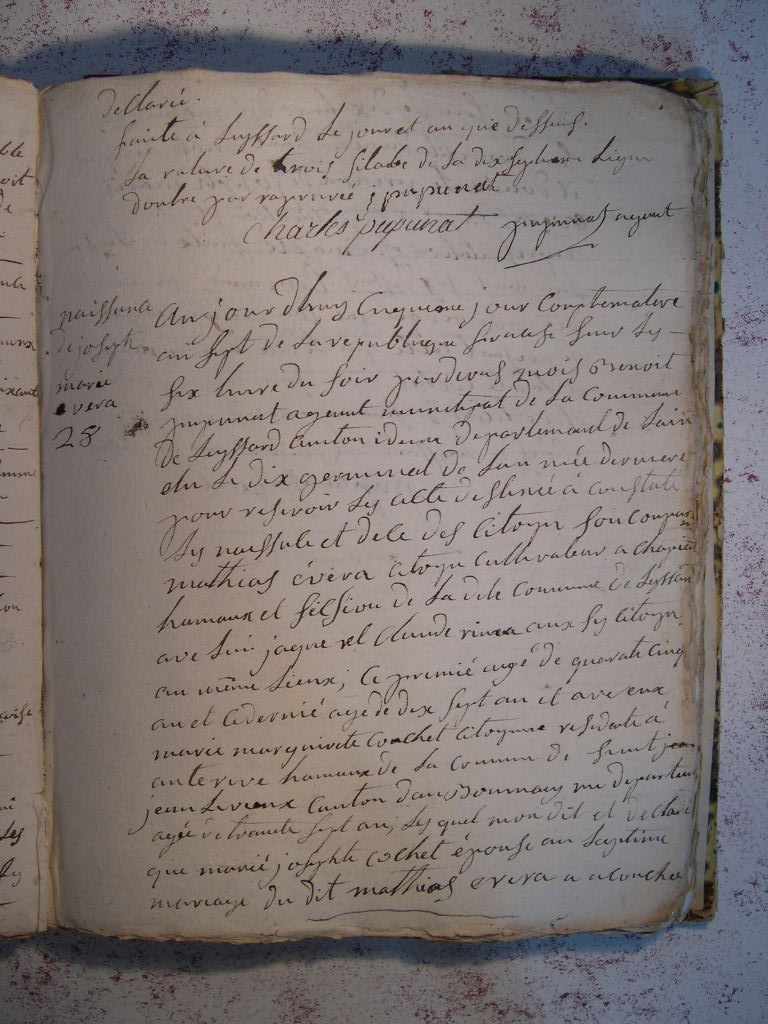 declarée.
faite à Leyssard Le jour et an que dessus.
La rature de trois silabe de La dix septieme Ligne
doutre par raprouvée j pupunat
Charles pupunat pupunat agent
naissance
de joseph
marie
evera
28
aujourdhuy Cinquieme jour Complemataire
an sept de La republique francaise sur Les
six heure du soir pardevant mois Benoit
pupunat agent municipal de La Commune
de Leyssard Canton idem departemant de Lain
elu Le dix germinal de Lan née derniere
pour resevoir Les acte destiné à Constaté
Les naissence et dece des Citoyen son Compar
mathias évéra Citoyen Cultivateur a Chapiat
hamaux et session de La dite Commune de Leyssard
ave Lui jaque et Claude aux sy Citoyen
au même Lieux; Ce premié agé de quarate cinq
an et Cedernié age de dix sept an et ave eux
marie marguirite Cochet Citoyenne residate à
ante rive hamaux de La Commune de Saint jean
jean Le vieux Canton dud departem
agée de trante sept an, Les quel mon dit et declaré
que marie josephte Cochet épouse au Legitime
mariage du dit mathias evera a acouchée